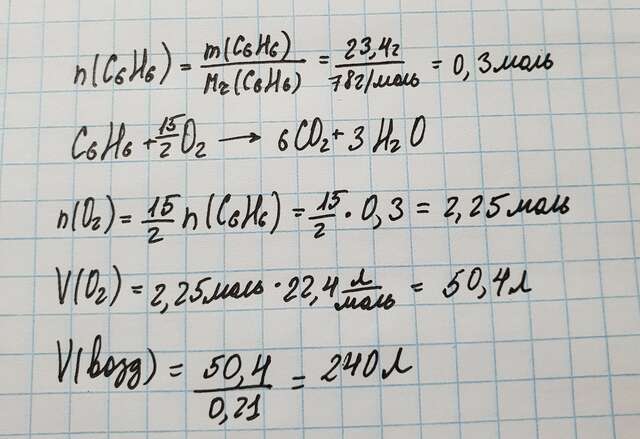 n(C₆H₆) = m(C₆H₆)/Mr(C₆H₆) = 23,4г/78г/моль = 0,3 моль
C₆H₆ + 15/2 O₂ → 6CO₂ + 3 H₂O
n(O₂) = 15/2 n(C₆H₆) = 15/2 · 0,3 = 2,25 моль
V(O₂) = 2,25 моль · 22,4 л/моль = 50,4 л
V(возд) = 50,4/0,21 = 240 л